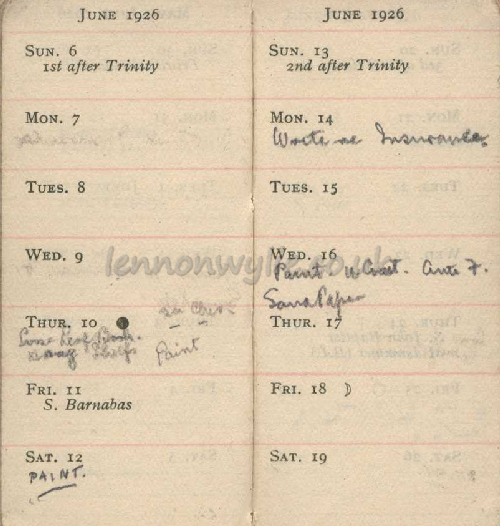 JUNE 1926
SUN. 6
1st after Trinity
MON. 7
TUES. 8
WED. 9
THUR. 10
Paint
FRI. 11
S. Barnabas
SAT. 12
PAINT.
JUNE 1926
SUN. 13
2nd after Trinity
MON. 14
Write re Insurance
TUES. 15
WED. 16
Paint
Sand Paper
THUR. 17
FRI. 18
SAT. 19
lennonwylie.co.uk